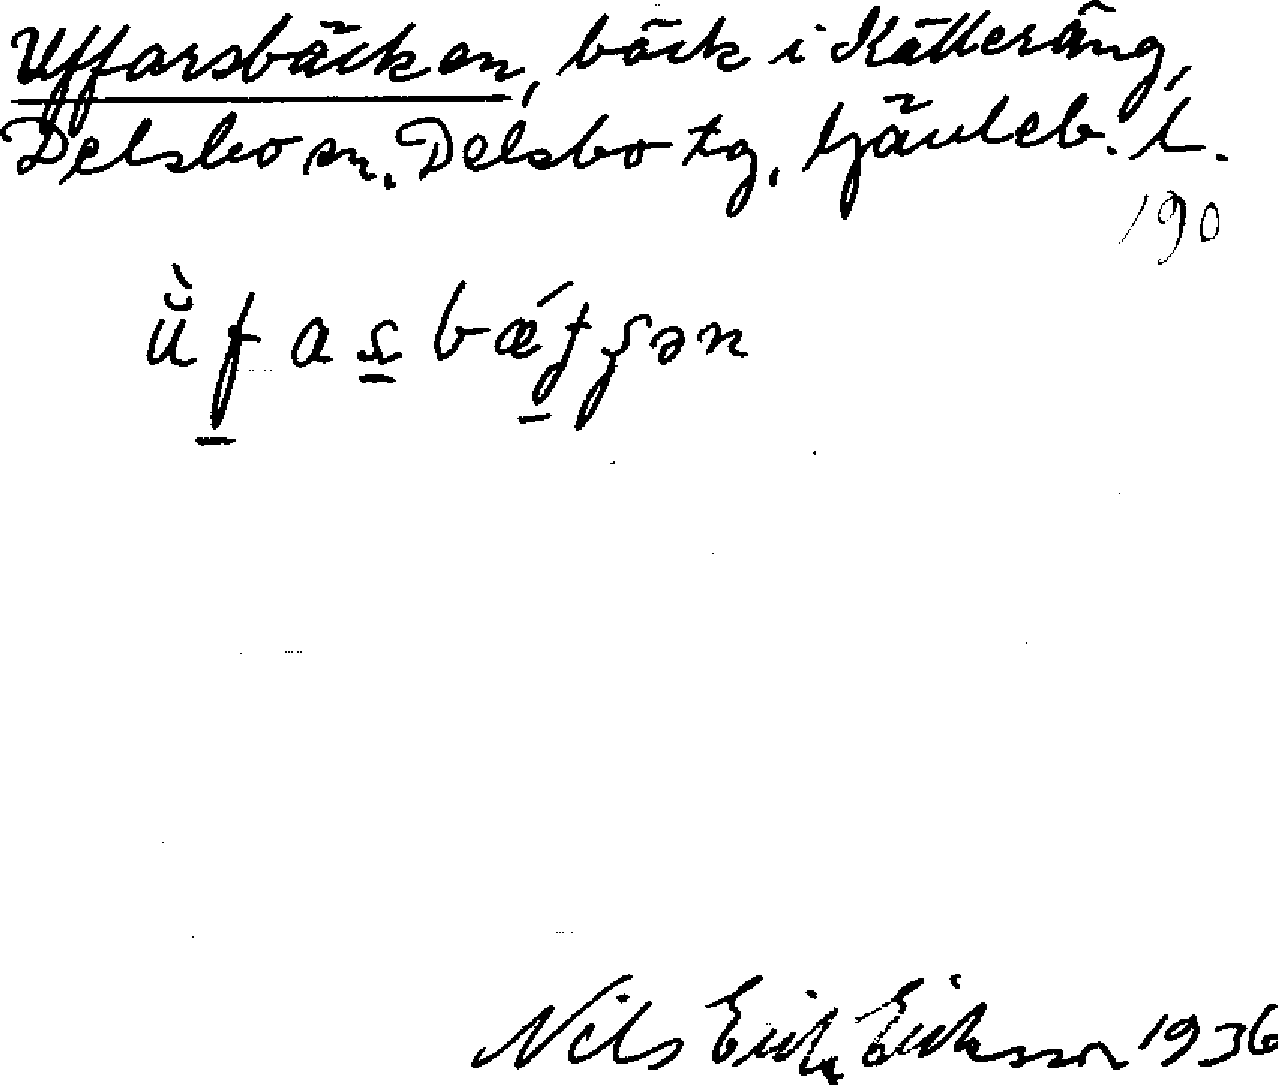 Uffarsbäcken, bäck i Källeräng,
Delsbo sn. Delsbo tg, Gävleb. l.
190
Nils Erik Eriksson 1936